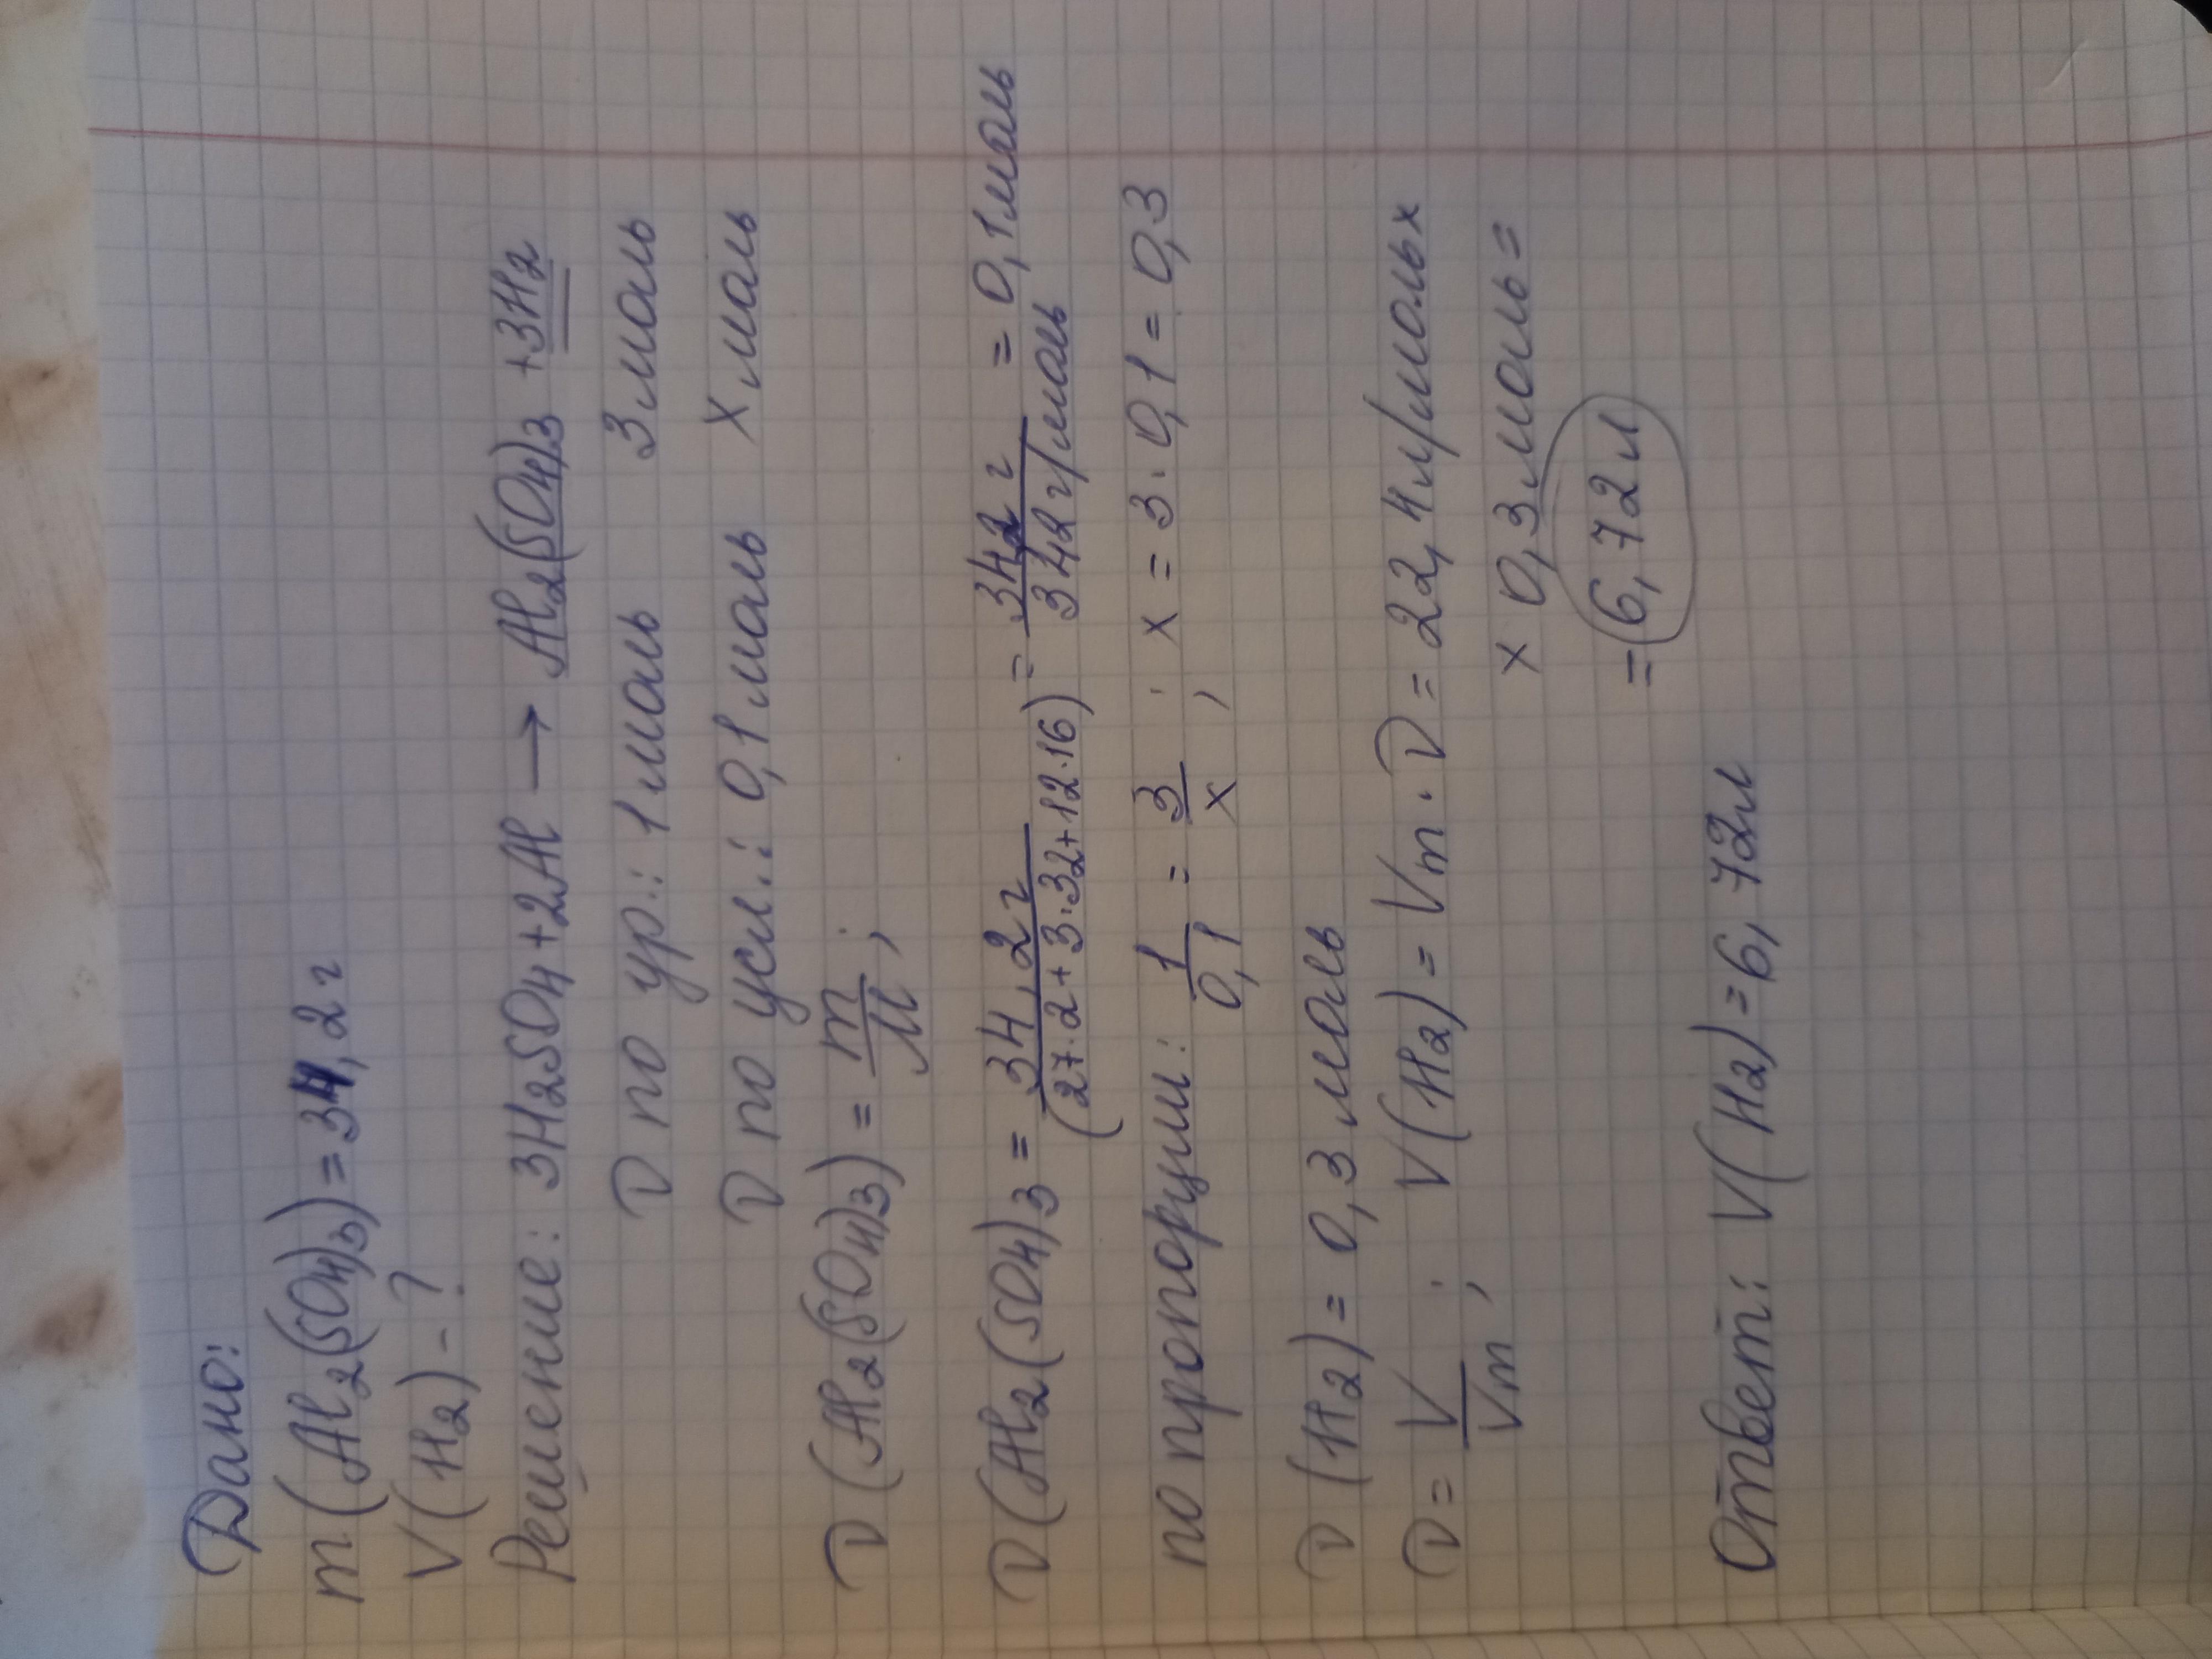 Дано:
m(Al2(SO4)3) = 34,2 г
V(H2) - ?
Решение: 3H2SO4 + 2Al → Al2(SO4)3 + 3H2
ν по ур.: 1 моль 3 моль
ν по усл.: 0,1 моль x моль
ν(Al2(SO4)3) = m/M;
ν(Al2(SO4)3 = 34,2 г/(27·2+3·32+12·16) = 34,2 г/342 г/моль = 0,1 моль
по пропорции: 1/0,1 = 3/x; x = 3·0,1 = 0,3
ν(H2) = 0,3 моль
ν = V/Vm; V(H2) = Vm·ν = 22,4 л/моль x
x 0,3 моль =
= 6,72 л
Ответ: V(H2) = 6,72 л